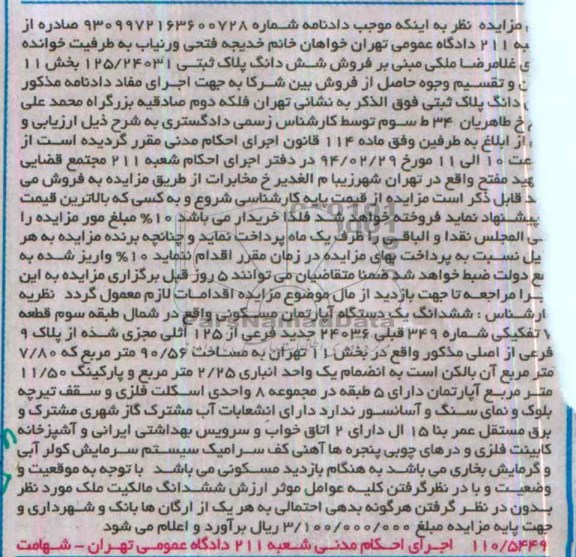 مزایده نظر به اینکه موجب دادنامه شماره ۹۳۰۹۹۷۲۱۶۳۶۰۰۷۲۸ صادره از
به ۲۱۱ دادگاه عمومی تهران خواهان خانم خدیجه فتحی ورنیاب به طرفیت خوانده
ی غلامرضا ملکی مبنی بر فروش شش دانگ پلاک ثبتی ۱۲۵/۲۴۰۳۱ بخش ۱۱
ن و تقسیم وجوه حاصل از فروش بین شرکا به جهت اجرای مفاد دادنامه مذکور
دانگ پلاک ثبتی فوق الذکر به نشانی تهران فلکه دوم صادقیه بزرگراه محمد علی
خ طاهریان ۳۴ ط سوم توسط کارشناس رسمی دادگستری به شرح ذیل ارزیابی و
از ابلاغ به طرفین وفق ماده ۱۱۴ قانون اجرای احکام مدنی مقرر گردیده است از
عت ۱۰ الی ۱۱ مورخ ۹۴/۰۲/۲۹ در دفتر اجرای احکام شعبه ۲۱۱ مجتمع قضایی
هید مفتح واقع در تهران شهرزیبا م الغدیر خ مخابرات از طریق مزایده به فروش می
د قابل ذکر است مزایده از قیمت پایه کارشناسی شروع و به کسی که بالاترین قیمت
پیشنهاد نماید فروخته خواهد شد فلذا خریدار می باشد ۱۰% مبلغ مور مزایده را
ی المجلس نقدا و الباقی را ظرف یک ماه پرداخت نماید و چنانچه برنده مزایده به هر
یل نسبت به پرداخت بهای مزایده در زمان مقرر اقدام ننماید ۱۰% واریز شده به
ع دولت ضبط خواهد شد ضمنا متقاضیان می توانند ۵ روز قبل برگزاری مزایده به این
را مراجعه تا جهت بازدید از مال موضوع مزایده اقدامات لازم معمول گردد نظریه
ارشناس : ششدانگ یک دستگاه آپارتمان مسکونی واقع در شمال طبقه سوم قطعه
۷ تفکیکی شماره ۳۴۹ قبلی ۲۴۰۳۶ جدید فرعی از ۱۲۵ اثلی مجزی شده از پلاک ۹
فرعی از اصلی مذکور واقع در بخش ۱۱ تهران به مساحت ۹۰/۵۶ متر مربع که ۷/۸۰
متر مربع آن بالکن است به انضمام یک واحد انباری ۲/۲۵ متر مربع و پارکینگ ۱۱/۵۰
متر مربع آپارتمان دارای ۵ طبقه در مجموعه ۸ واحدی اسکلت فلزی و سقف تیرچه
بلوک و نمای سنگ و آسانسور ندارد دارای انشعابات آب مشترک گاز شهری مشترک و
برق مستقل عمر بنا ۱۵ ال دارای ۲ اتاق خواب و سرویس بهداشتی ایرانی و آشپزخانه
کابینت فلزی و درهای چوبی پنجره ها آهنی کف سرامیک سیستم سرمایش کولر آبی
و گرمایش بخاری می باشد به هنگام بازدید مسکونی می باشد با توجه به موقعیت و
وضعیت و با در نظرگرفتن کلیه عوامل موثر ارزش ششدانگ مالکیت ملک مورد نظر
بدون در نظر گرفتن هرگونه بدهی احتمالی به هر یک از ارگان ها بانک و شهرداری و
جهت پایه مزایده مبلغ ۳/۱۰۰/۰۰۰/۰۰۰ ریال برآورد و اعلام می شود
۱۱۰/۵۴۴۹ اجرای احکام مدنی شعبه ۲۱۱ دادگاه عمومی تهران - شهامت
ParsNamadData